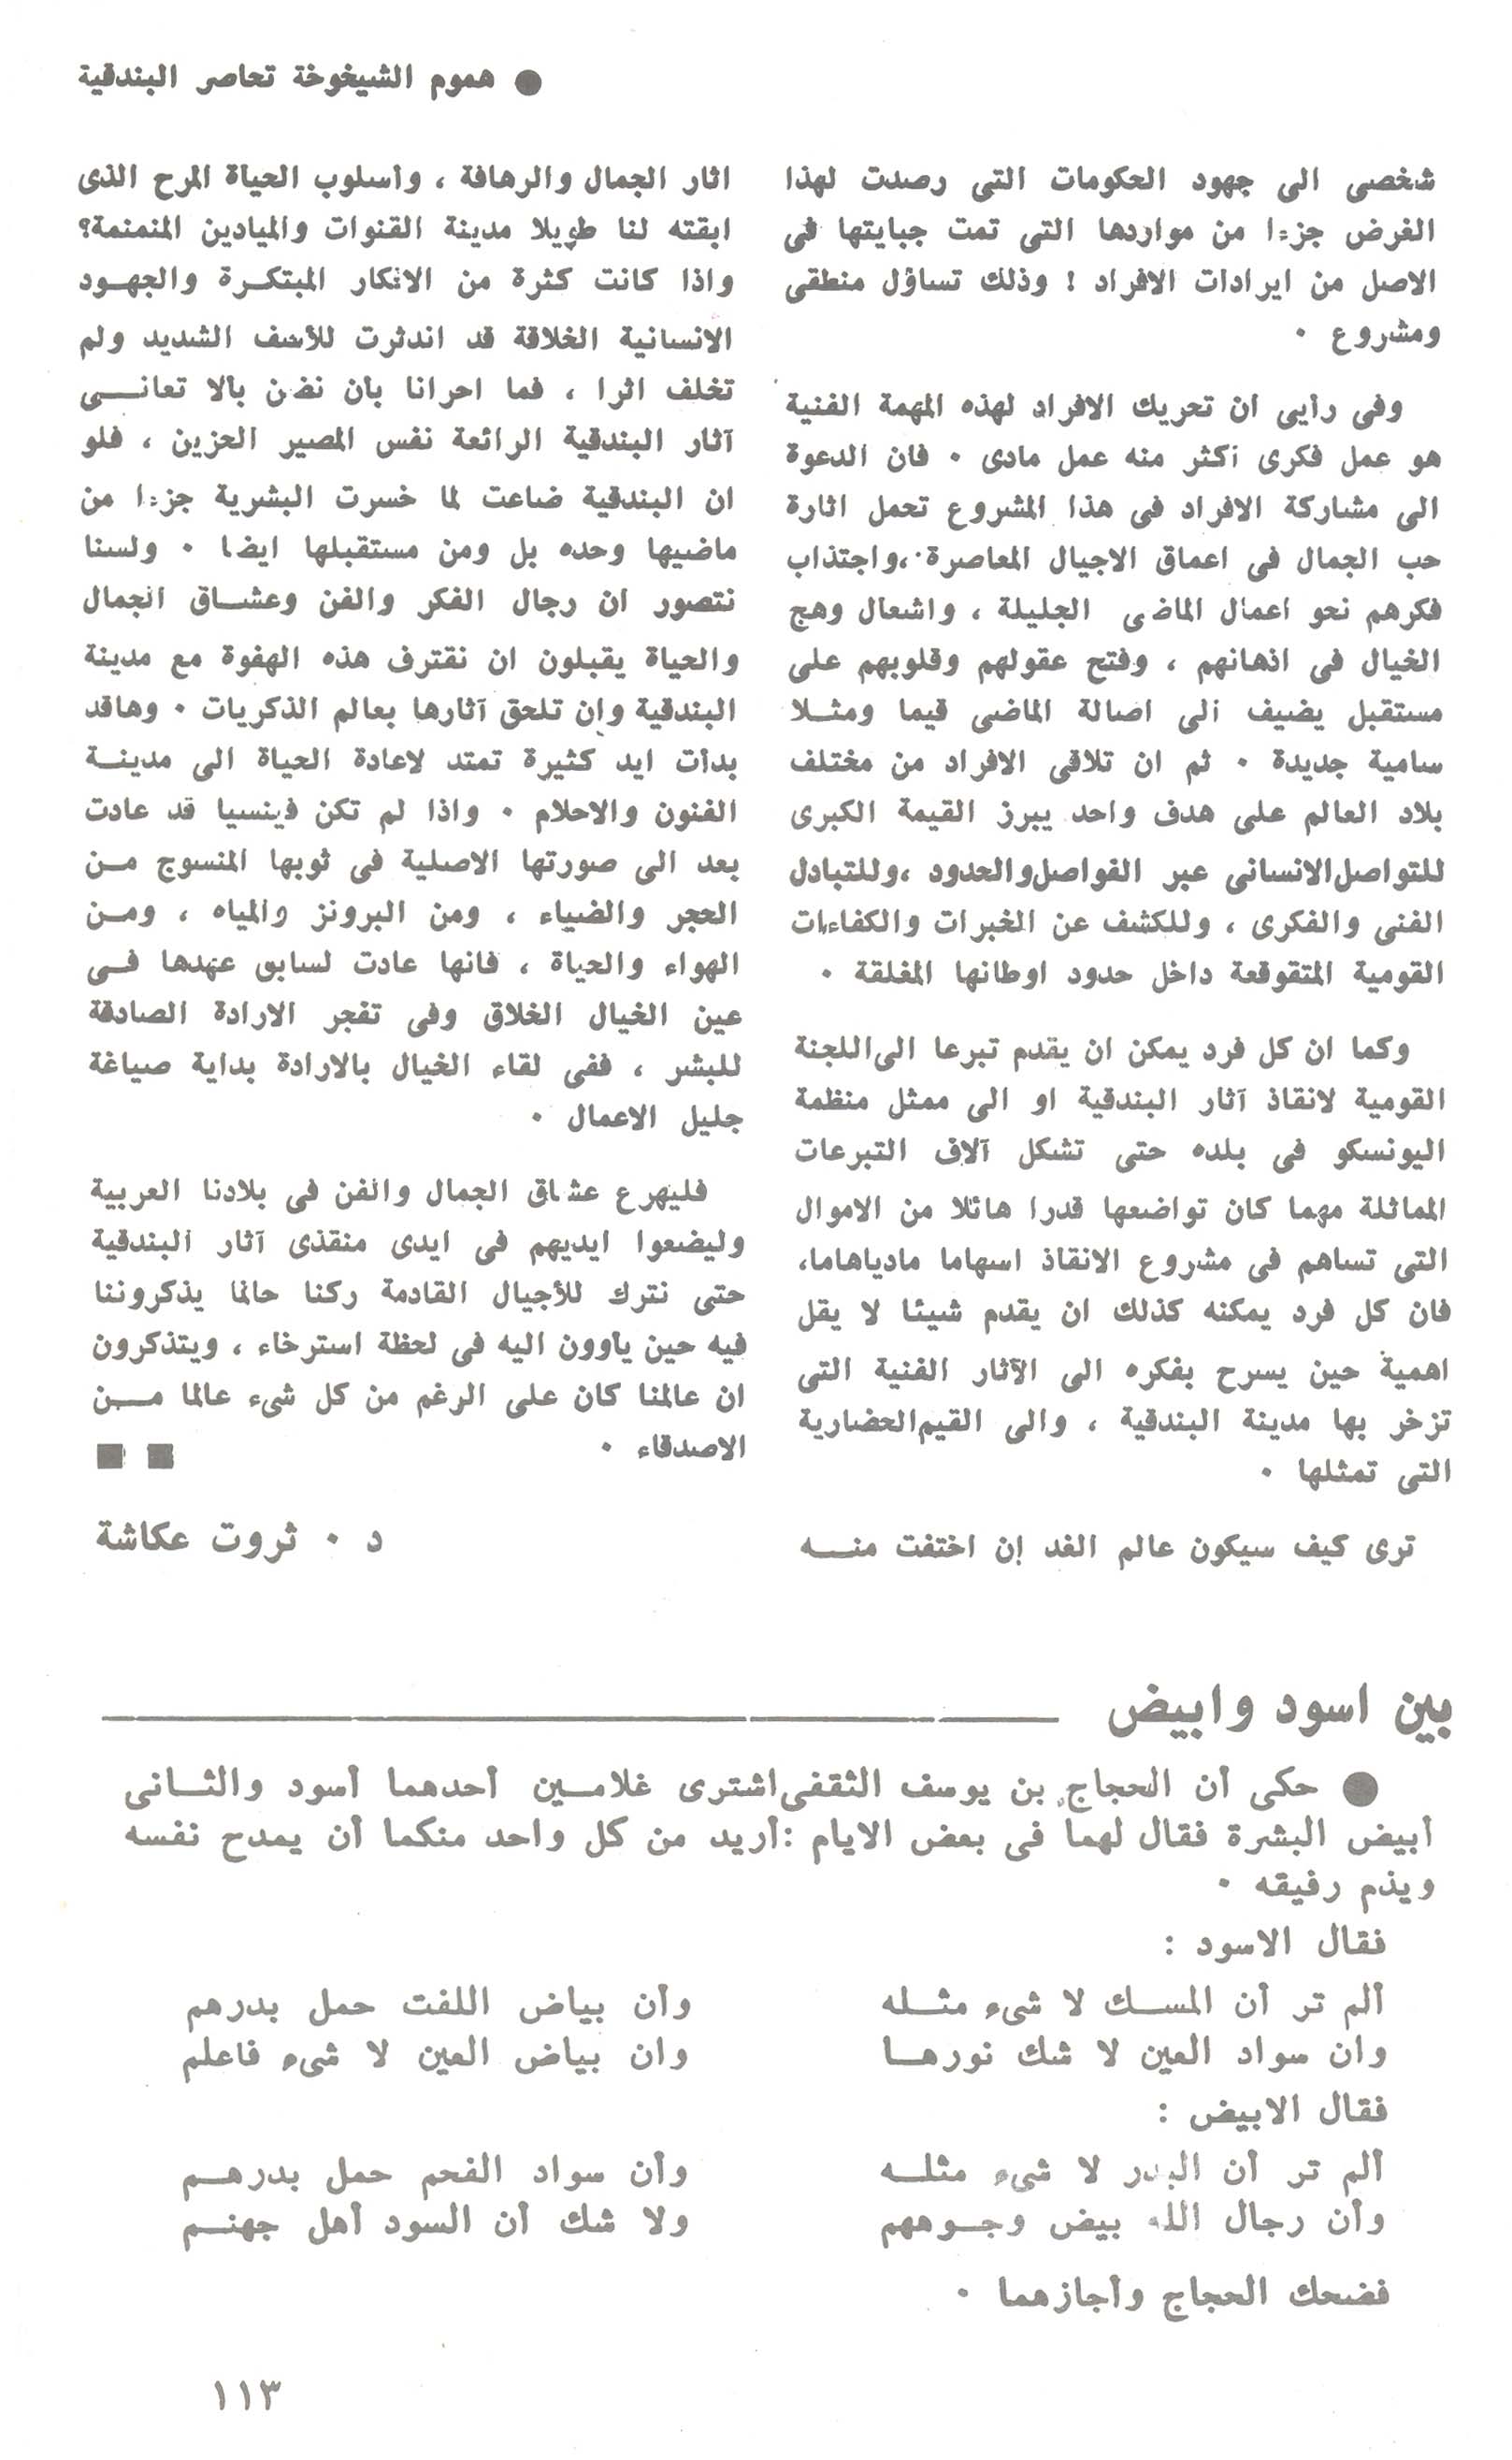 ● هموم الشيخوخة تحاصر البندقية
شخصى الى جهود الحكومات التى رصدت لهذا
الغرض جزءا من مواردها التى تمت جبايتها فى
الاصل من ايرادات الافراد ! وذلك تساؤل منطقى
ومشروع ٠
وفى رأيى ان تحريك الافراد لهذه المهمة الفنية
هو عمل فكرى أكثر منه عمل مادى ٠ فان الدعوة
الى مشاركة الافراد فى هذا المشروع تحمل اثارة
حب الجمال فى اعماق الاجيال المعاصرة ،واجتذاب
فكرهم نحو اعمال الماضى الجليلة ، واشعال وهج
الخيال فى اذهانهم ، وفتح عقولهم وقلوبهم على
مستقبل يضيف الى اصالة الماضى قيما ومثـلا
سامية جديدة ٠ ثم ان تلاقى الافراد من مختلف
بلاد العالم على هدف واحد يبرز القيمة الكبرى
للتواصل الانسانى عبر الفواصل والحدود ،وللتبادل
الفنى والفكرى ، وللكشف عن الخبرات والكفاءات
القومية المتقوقعة داخل حدود اوطانها المغلقة ٠
وكما ان كل فرد يمكن ان يقدم تبرعا الى اللجنة
القومية لانقاذ آثار البندقية او الى ممثل منظمة
اليونسكو فى بلده حتى تشكل آلاف التبرعات
المماثلة مهما كان تواضعها قدرا هائلا من الاموال
التى تساهم فى مشروع الانقاذ اسهاما ماديا هاما،
فان كل فرد يمكنه كذلك ان يقدم شيئا لا يقل
اهمية حين يسرح بفكره الى الآثار الفنية التى
تزخر بها مدينة البندقية ، والى القيم الحضارية
التى تمثلها ٠
ترى كيف سيكون عالم الغد إن اختفت منـــه
اثار الجمال والرهافة ، واسلوب الحياة المرح الذى
ابقته لنا طويلا مدينة القنوات والميادين المنمنمة؟
واذا كانت كثرة من الافكار المبتكـرة والجهـود
الانسانية الخلاقة قد اندثرت للأسف الشديد ولم
تخلف اثرا ، فما احرانا بان نضن بالا تعانـــى
آثار البندقية الرائعة نفس المصير الحزين ، فلو
ان البندقية ضاعت لما خسرت البشرية جزءا من
ماضيها وحده بل ومن مستقبلها ايضا ٠ ولسنا
نتصور ان رجال الفكر والفن وعشـاق الجمال
والحياة يقبلون ان نقترف هذه الهفوة مع مدينة
البندقية وان تلحق آثارها بعالم الذكريات ٠ وهاقد
بدأت ايد كثيرة تمتد لاعادة الحياة الى مدينـة
الفنون والاحلام ٠ واذا لم تكن فينسيا قد عادت
بعد الى صورتها الاصلية فى ثوبها المنسوج مـن
الحجر والضياء ، ومن البرونز والمياه ، ومـن
الهواء والحياة ، فانها عادت لسابق عهدها فـى
عين الخيال الخلاق وفى تفجر الارادة الصادقة
للبشر ، ففى لقاء الخيال بالارادة بداية صياغة
جليل الاعمال ٠
فليهرع عشاق الجمال والفن فى بلادنا العربية
وليضعوا ايديهم فى ايدى منقذى آثار البندقية
حتى نترك للأجيال القادمة ركنا حالما يذكروننا
فيه حين يأوون اليه فى لحظة استرخاء ، ويتذكرون
ان عالمنا كان على الرغم من كل شىء عالما مـــن
الاصدقاء ٠ ■ ■
د ٠ ثروت عكاشة
بين اسود وابيض
● حكى أن الحجاج بن يوسف الثقفى اشترى غلامـين أحدهما أسود والثـانى
أبيض البشرة فقال لهما فى بعض الايام :أريد من كل واحد منكما أن يمدح نفسه
ويذم رفيقه ٠
فقال الاسود :
ألم تر أن المسـك لا شىء مثـله وأن بياض اللفت حمل بدرهم
وان سواد العين لا شك نورهـا وان بياض العين لا شىء فاعلم
فقال الابيض :
ألم تر أن البدر لا شىء مثلـه وأن سواد الفحم حمل بدرهـم
وأن رجال الله بيض وجـوههم ولا شك أن السود أهل جهنـم
فضحك الحجاج وأجازهما ٠
١١٣